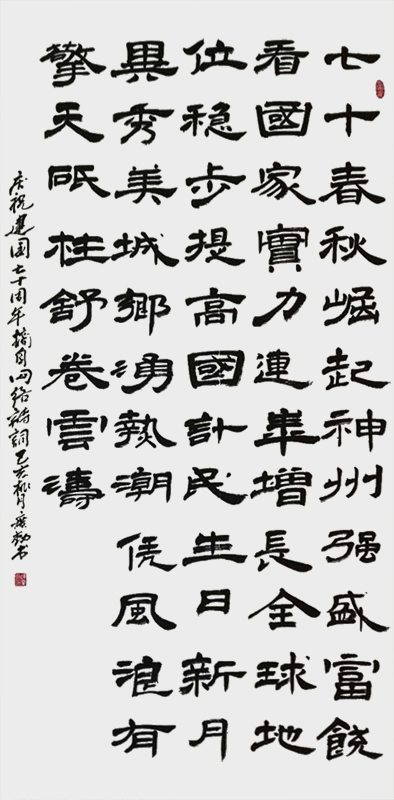 七十春秋崛起神州强盛富饒
看國家實力連年增長全球地
位稳步提高國計民生日新月
異秀美城鄉湧熱潮凭風浪有
擎天砥柱舒卷雲濤
庆祝建国七十周年摘自网络诗詞己亥月书